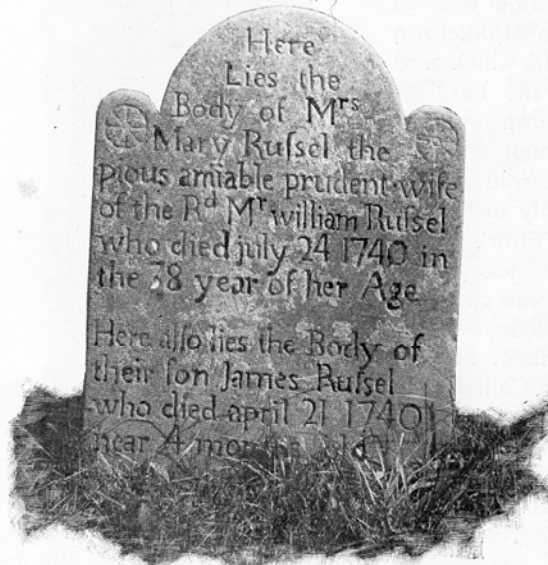 Here
Lies the
Body of Mrs
Mary Ruſsel the
pious amiable prudent wife
of the Rd Mr william Ruſsel
who died july 24 1740 in
the 38 year of her Age
Here alſo lies the Body of
their ſon James Ruſsel
who died april 21 1740
near 4 months old